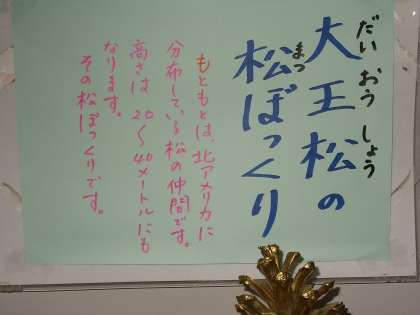 大王松の
だいおうしょう
松ぼっくり
まつ
もともとは、北アメリカに
分布している松の仲間です。
高さは20～40メートルにも
なります。
その松ぼっくりです。